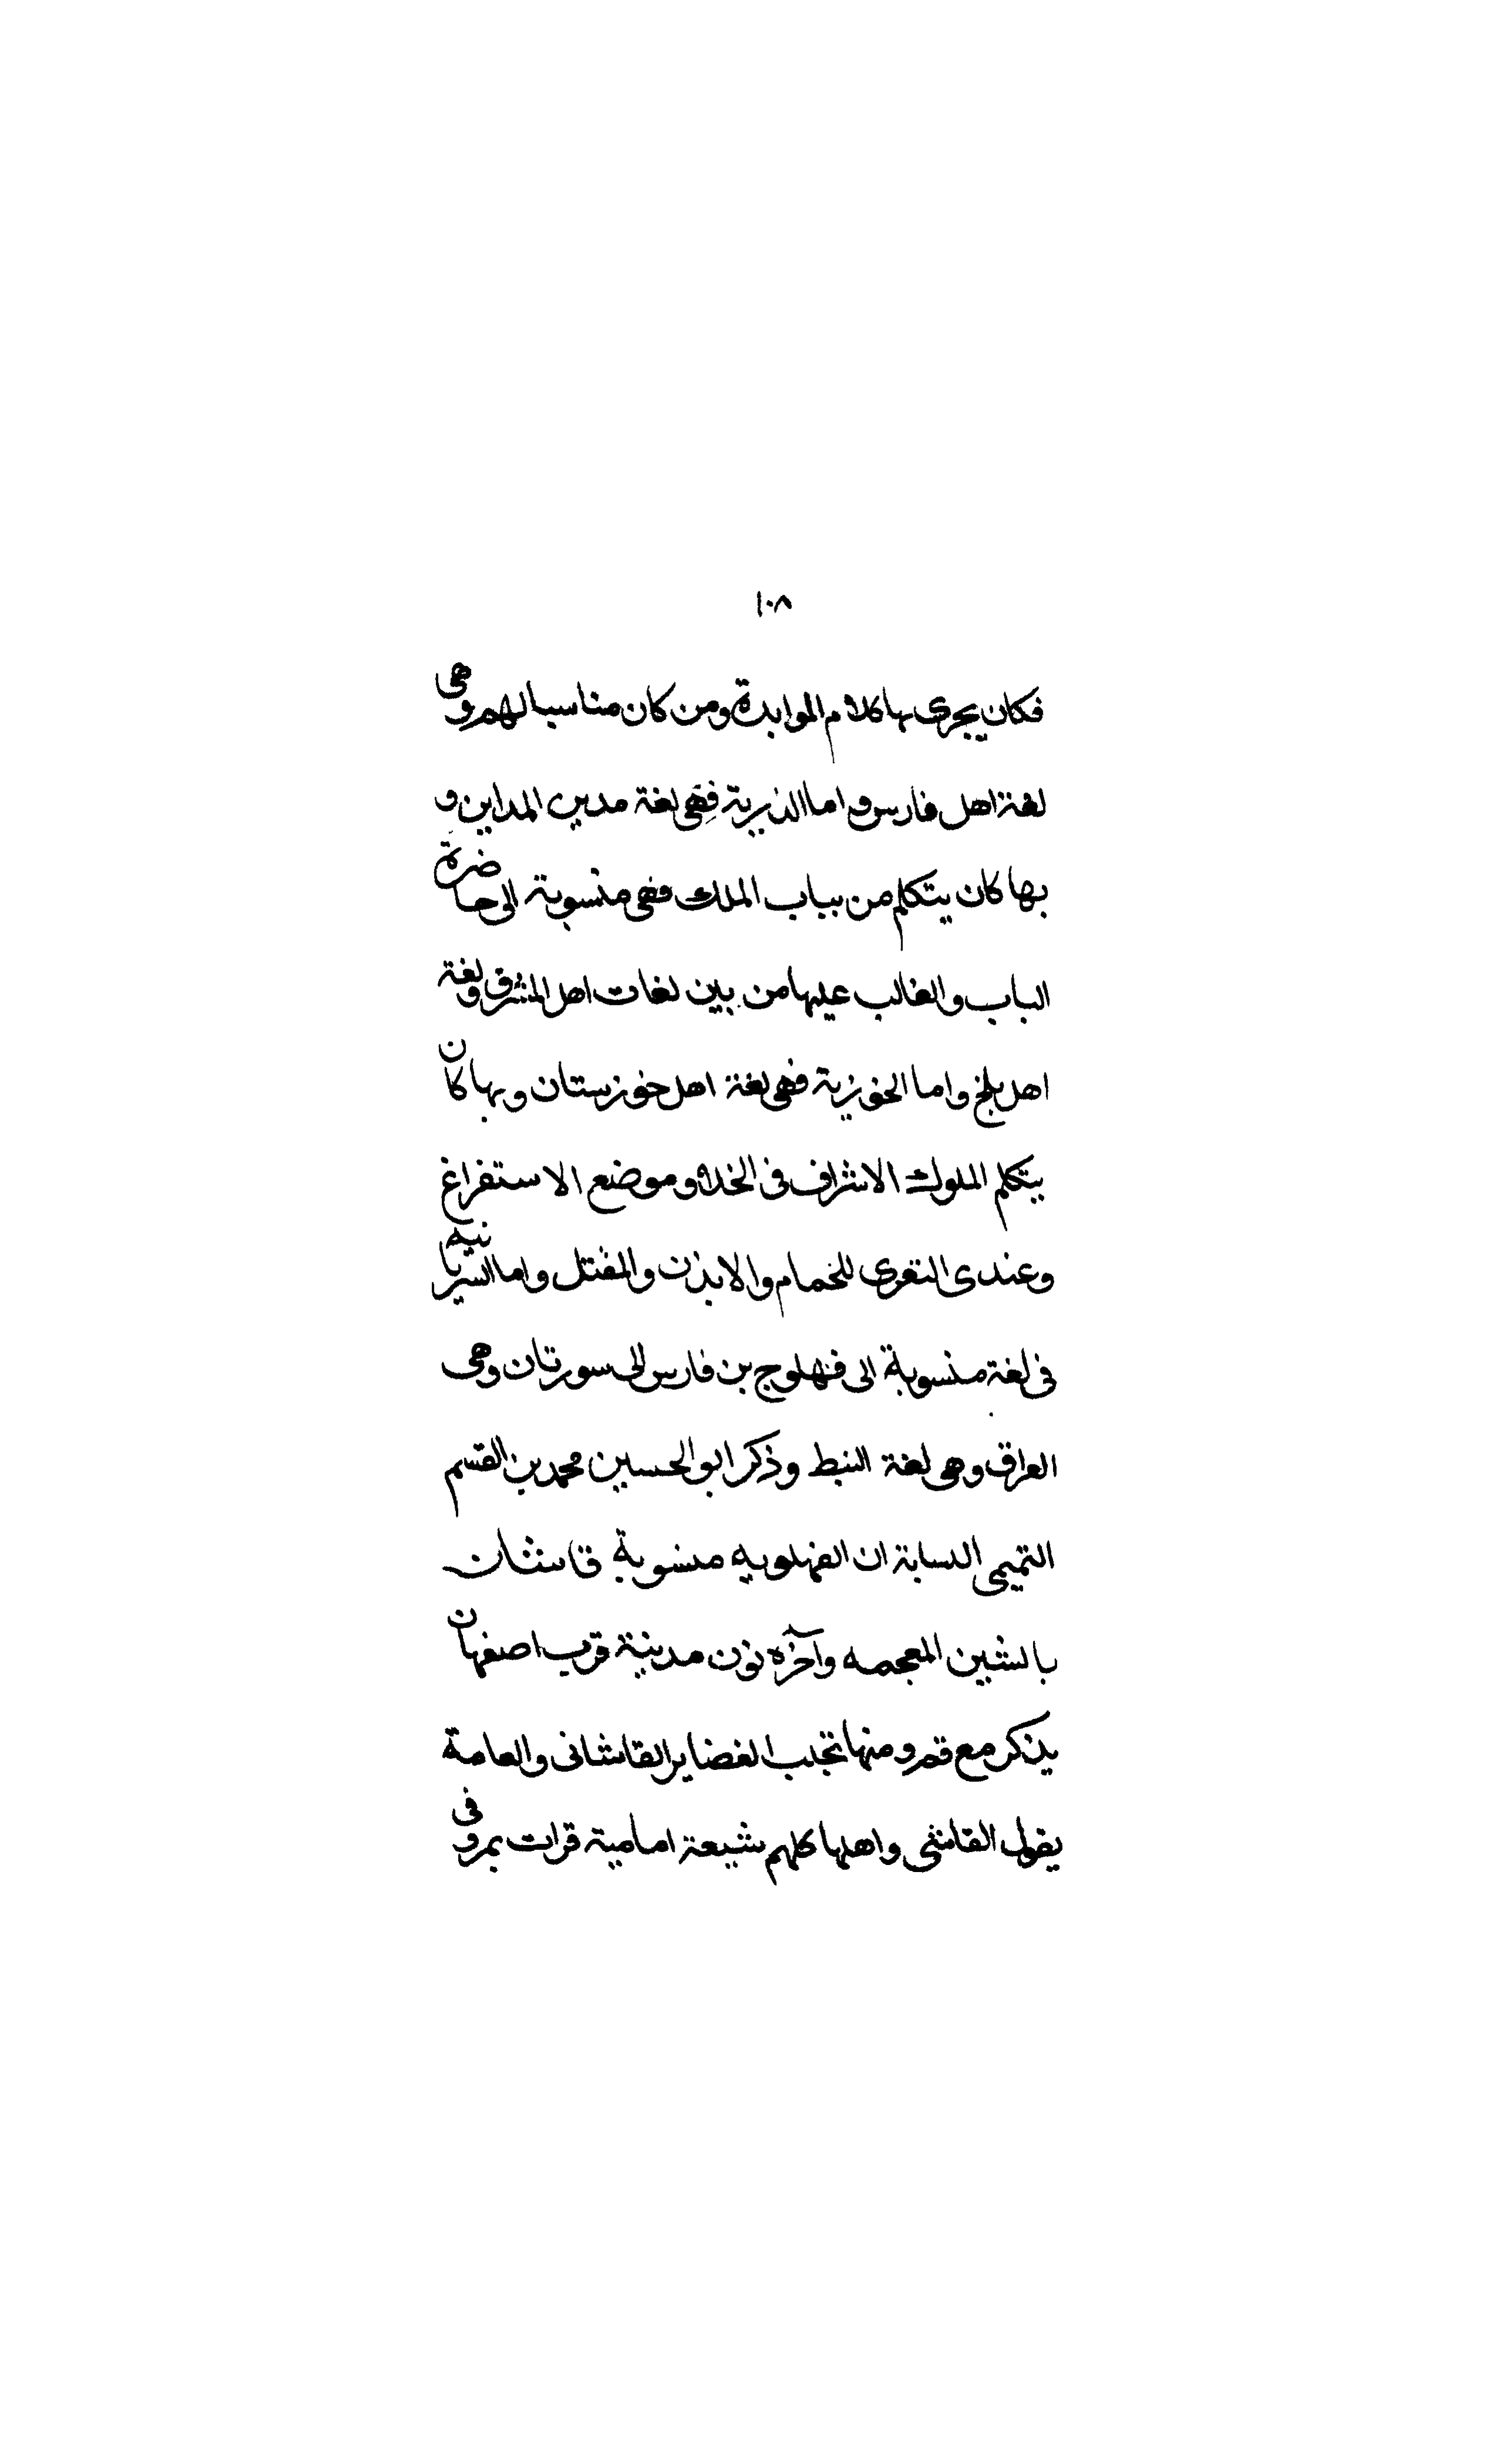 ١٠٨
فكان يجرى بها كلام الموابدة ومن كان مناسبا لهم وهى
لغة اهل فارس و اما الذيرية فهى لغة مدين المداين و
بها كان يتكلم من بباب الملك فهى منسوبة الى حاضرة
الباب والغالب عليها من بين لغات اهل المشرق ولغة
اهل بلخ واما الخوزية فهى لغة اهل خوزستان وبها كان
يتكلم الملوك الاشراف فى الخلاو موضع الاستفراغ
وعندى التغرى للخمام والابذن والمفتل واما السريانيه
فى لغة منسوبة الى فهلوج بن فارس الى سورتان وهى
العراق وهى لغة النبط وذكر ابو الحسين محمد بن القسم
التميمى النسابة ان الفهلويه منسوبة قاشان
بالشين المعجمه وآخره نون مدينة قرب اصفهان
يذكر مع قم ومنها تجلب الغضاير القاشانى والعامة
يقول القاشى واهلها كلهم شيعة امامية قرات بمرو فى